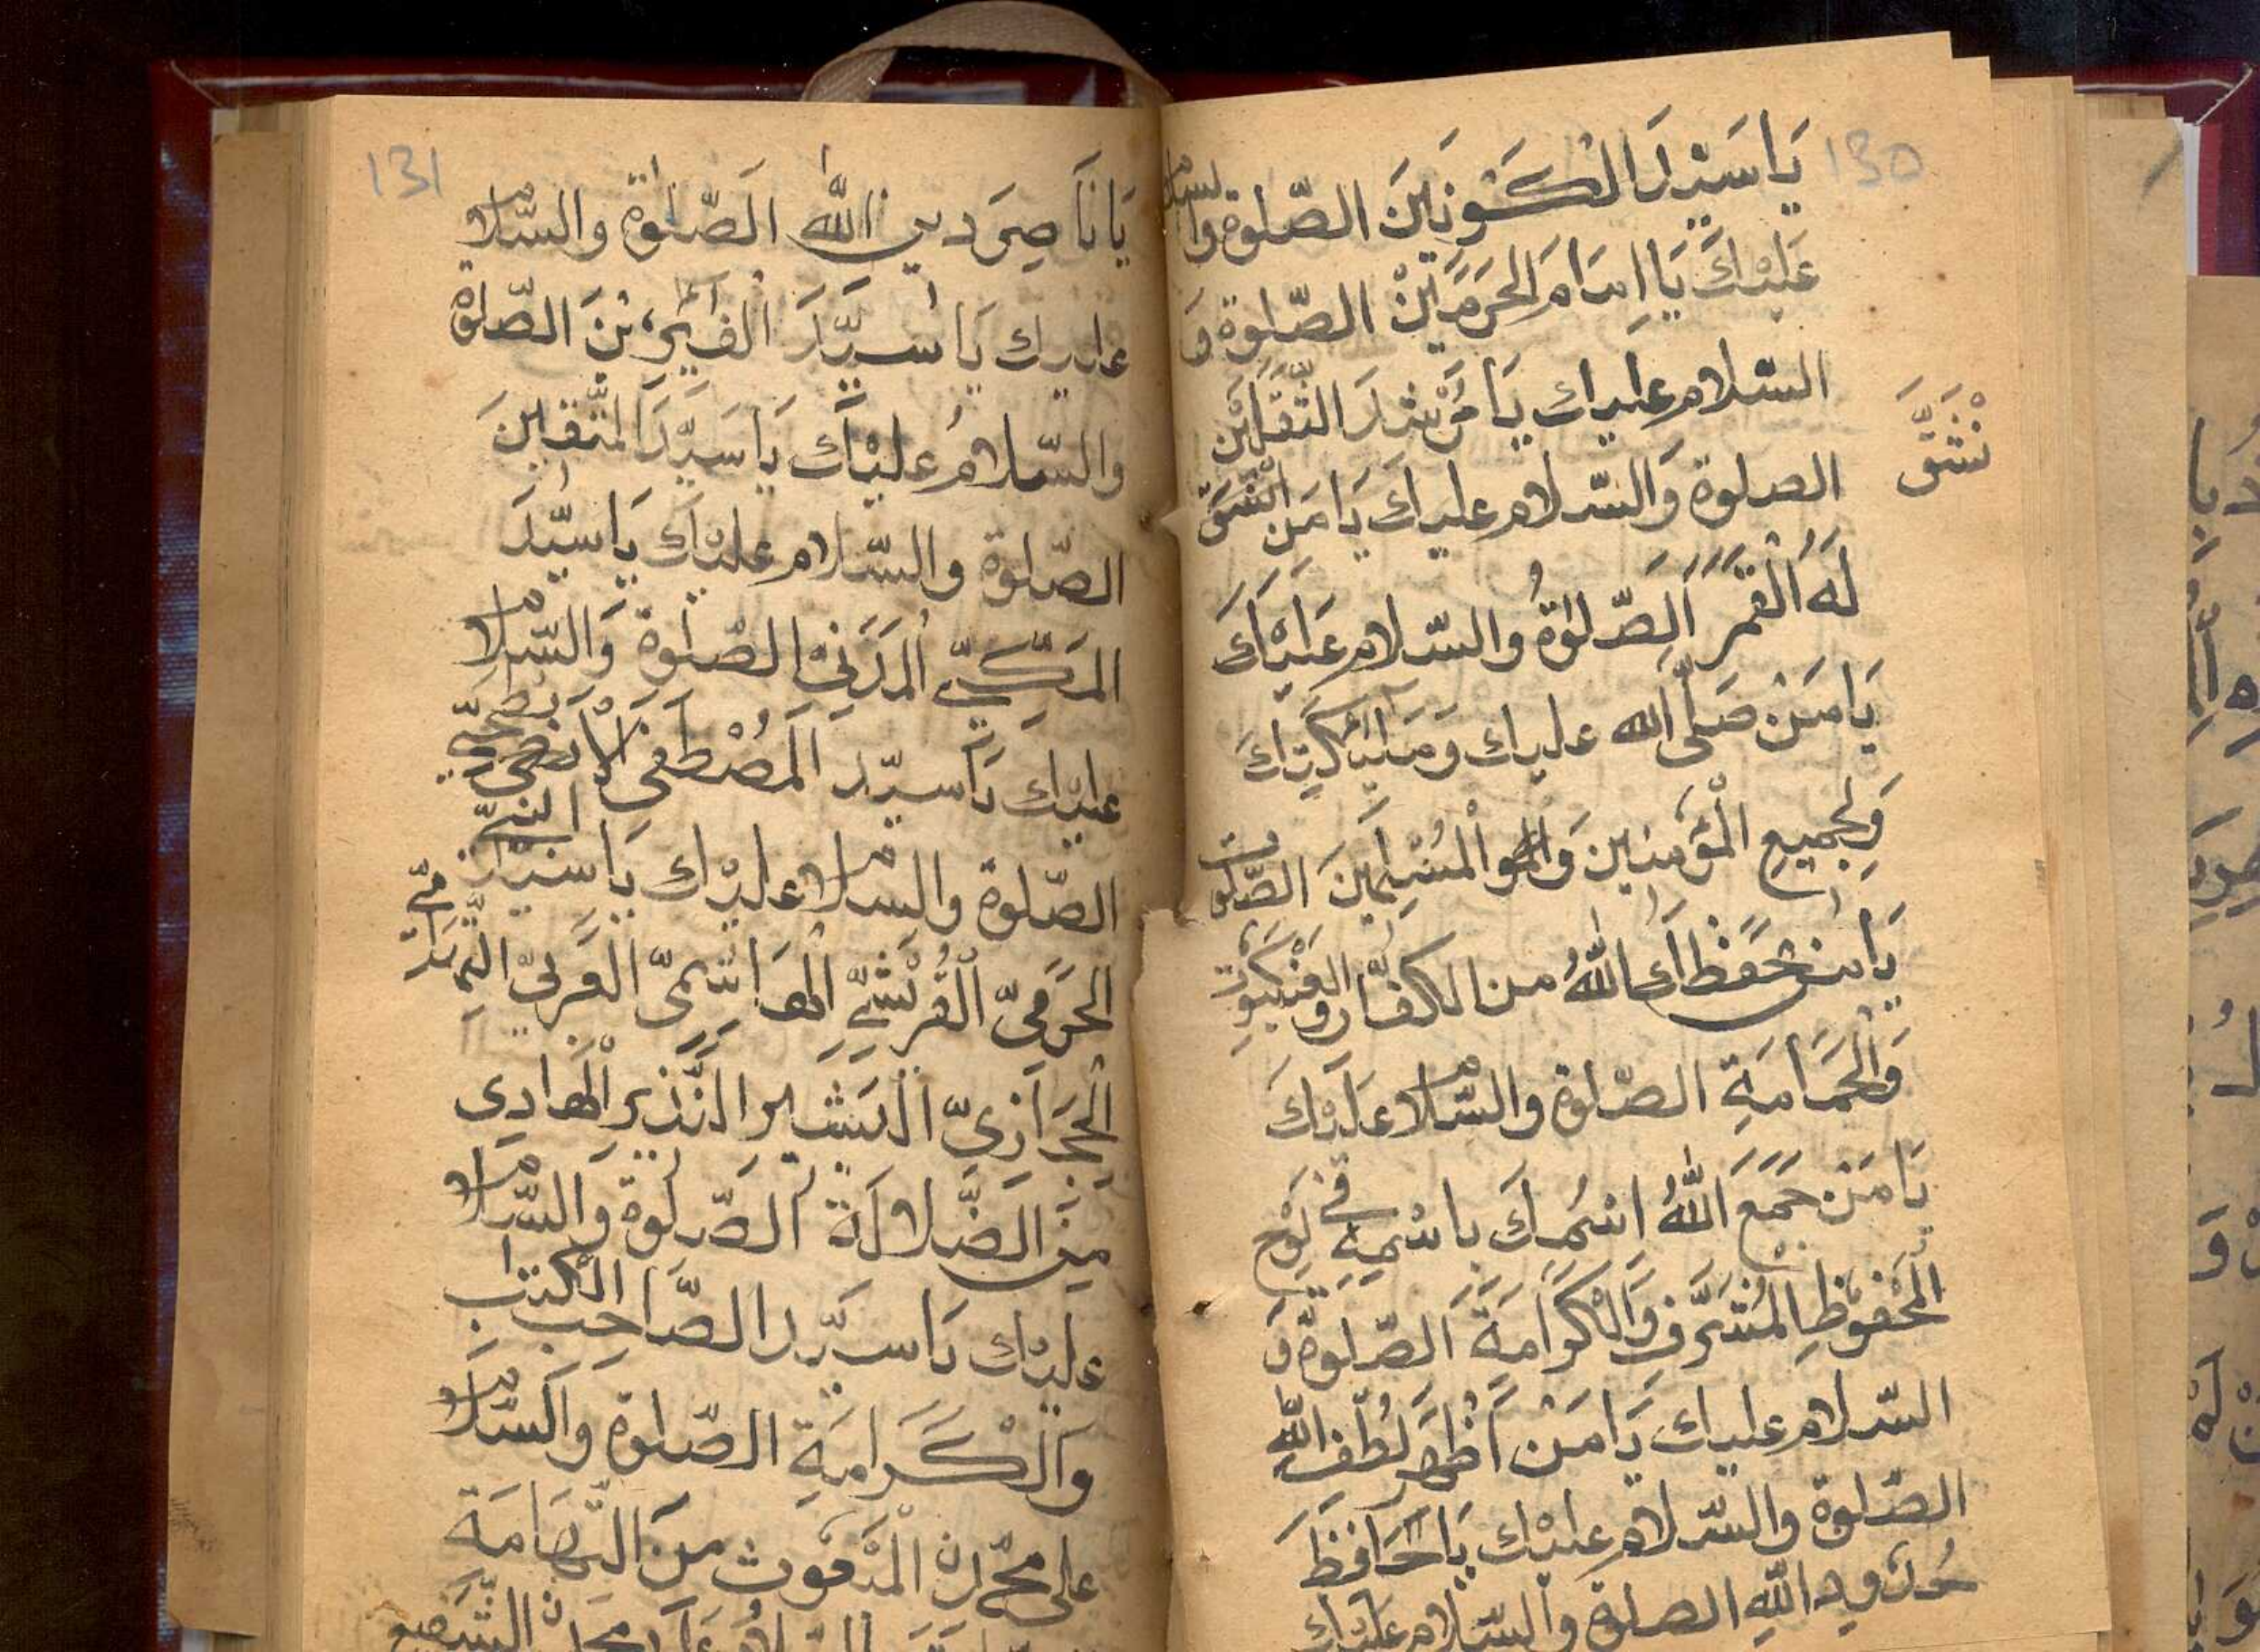 130
يَا سَيِّدَ الْكَوْنَيْنِ الصّلوة والسلام
عَلَيْكَ يَا اِمَامَ الْحَرَمَيْنْ الصّلوة وَ
السّلام عليك يَا مُرْشِدَ الثَّقَلَيْن
الصلوة وَالسّلام عليك يَا مَن انْشَقَّ
نْشَقَّ
لَهُ الْقَمَرَ اَلصّلوةُ والسّلام عَلَيْكَ
يَا مَنْ صَلَّى الله عليك وَمَلَائِكَتِكَ
وَلِجَمِيعِ الْمُؤمنين وَالْمُسْلِمِينَ الصّلوة
يَا من حَفَظَكَ اللّٰهُ من الكفّار والعَنْكَبُوت
وَالْحَمَامَةِ الصّلوة والسّلام عَلَيْكَ
يَا مَنْ جَمَعَ اللّٰهُ اسْمُكَ بِاسْمِهِ فِي لَوْحِ
الْمَحْفُوْظِ الْمُشَرَّفِ وَالْكَرَامَةَ اَلصّلوة وَ
السّلام عليك يَا مَنْ اَظْهَرَ لُطْفَ اللّٰهِ
الصّلوة والسّلام عليْك يَا حَافِظَ
حُدُودِ اللّٰهِ الصلوة والسّلام عليك
131
يَا نَاصِرَ دِينِ اللّٰه اَلصّلوة والسّلام
عليك يَا سَيِّدَ الصّلوة
والسّلامُ عليْكَ يَا سَيِّدَ الْمُتَّقِينَ
الصّلوة والسّلام عليْكَ يَا سَيِّدَ
المَكِّيِّ الْمَدَنِيْ الصّلوة وَالسّلام
عليْك يَا سيّد الْمُصْطَفَى
الصّلوة والسلام عليْك يَا سَيِّدَ النبيّ
الحَرَمِيِّ الْقُرَيْشِيِّ الْهَاشِمِيِّ الْعَرَبِيِّ التِّهَامِيِّ
الْحِجَازِيِّ الْبَشِيْرِ النَّذِيرِ الْهَادِي
مِنَ الضَّلَالَةِ الصّلوة وَالسّلام
عليْك يَا سيِّد الصَّاحِب الْكِتَاب
وَالْكَرَامَةِ الصّلوة وَالسّلام
على محمّدن الْمَبْعُوث مِنَ التِّهَامَة